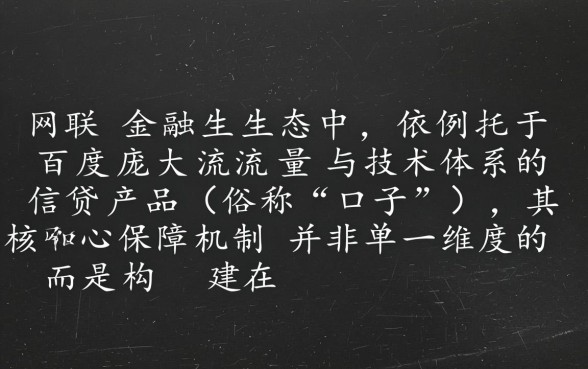 网联 金融生生态中，依例托于
百度庞大流流量与技术体系的
信贷产品（俗称“口子”），其
核心保障机制 并非单一维度的
而是构 建在